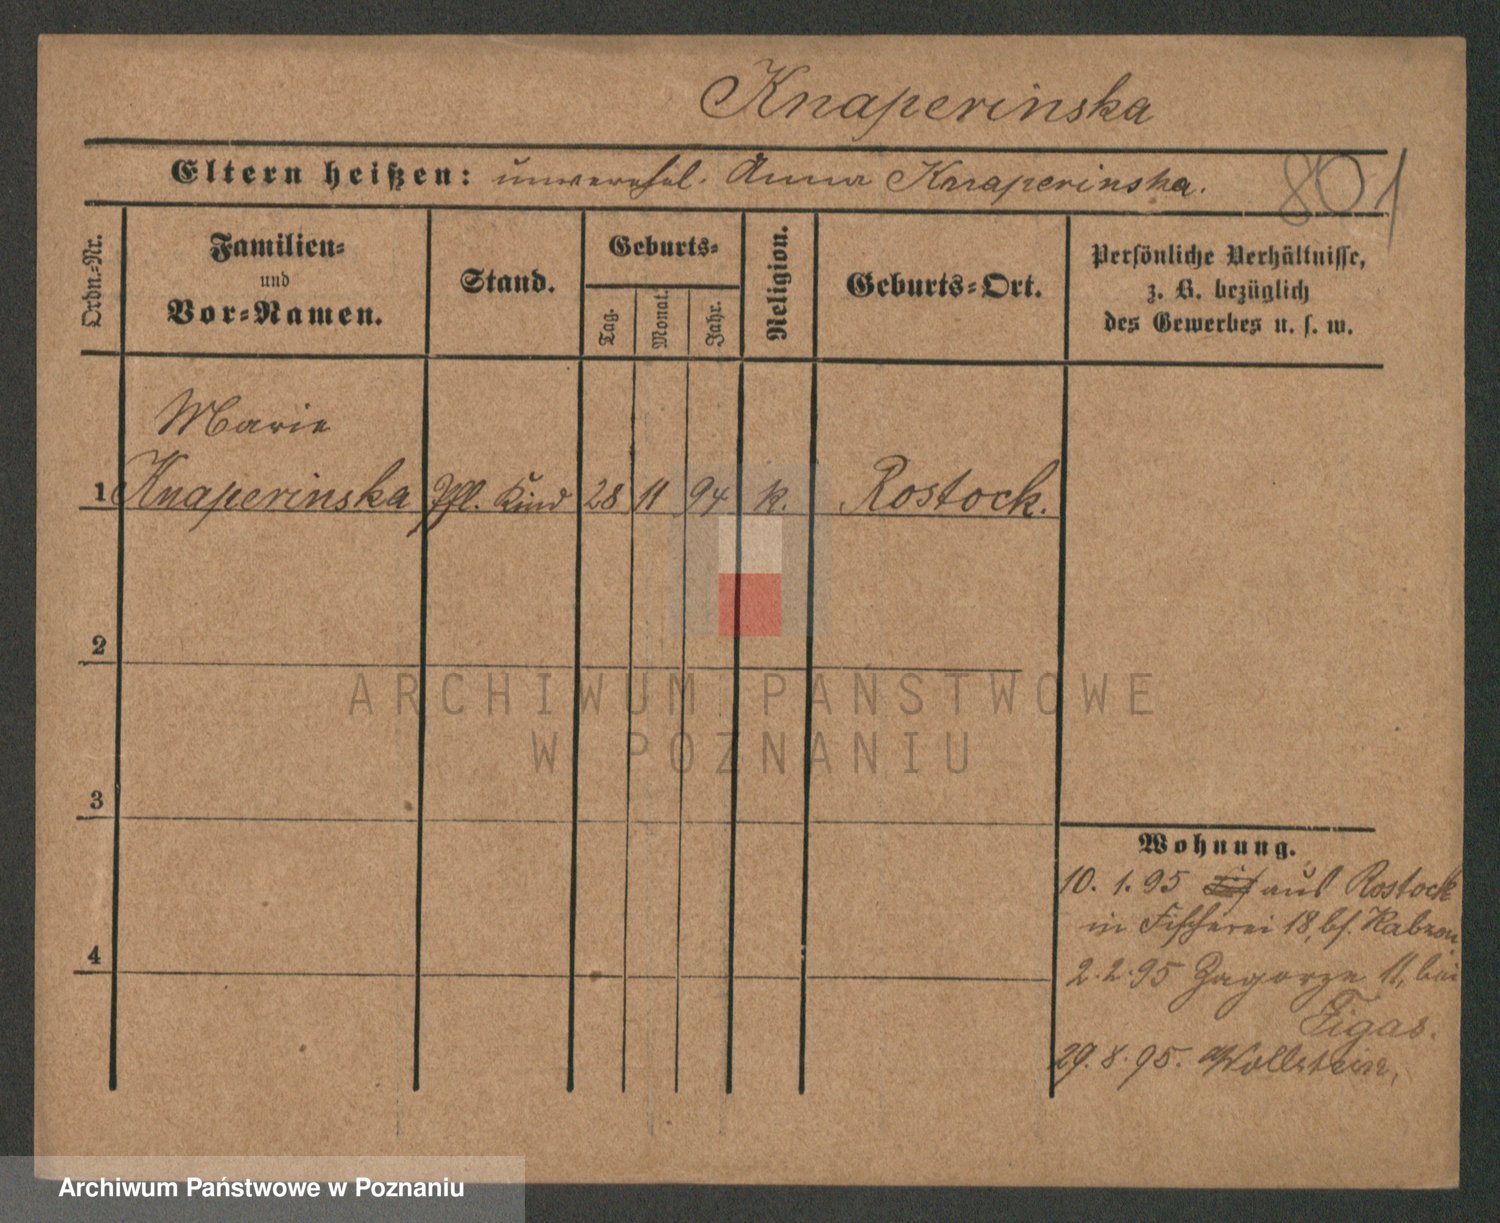 Knaperinska
Eltern heißen: unverehel. Anna Knaperinska.
801
Ordn.-Nr.
Familien-
und
Vor-Namen.
Stand.
Geburts-
Tag.
Monat.
Jahr.
Religion.
Geburts-Ort.
Persönliche Verhältnisse,
z. B. bezüglich
des Gewerbes u. s. w.
Marie
1 Knaperinska Pfl. Kind 28 11 94 k. Rostock.
2
3
4
Wohnung.
10. 1. 95 aus Rostock
in Fischerei 18, bei
2. 2. 95 Zagorze 11, bei
Figas.
29. 8. 95. Wollstein,
ARCHIWUM PAŃSTWOWE
W POZNANIU
Archiwum Państwowe w Poznaniu